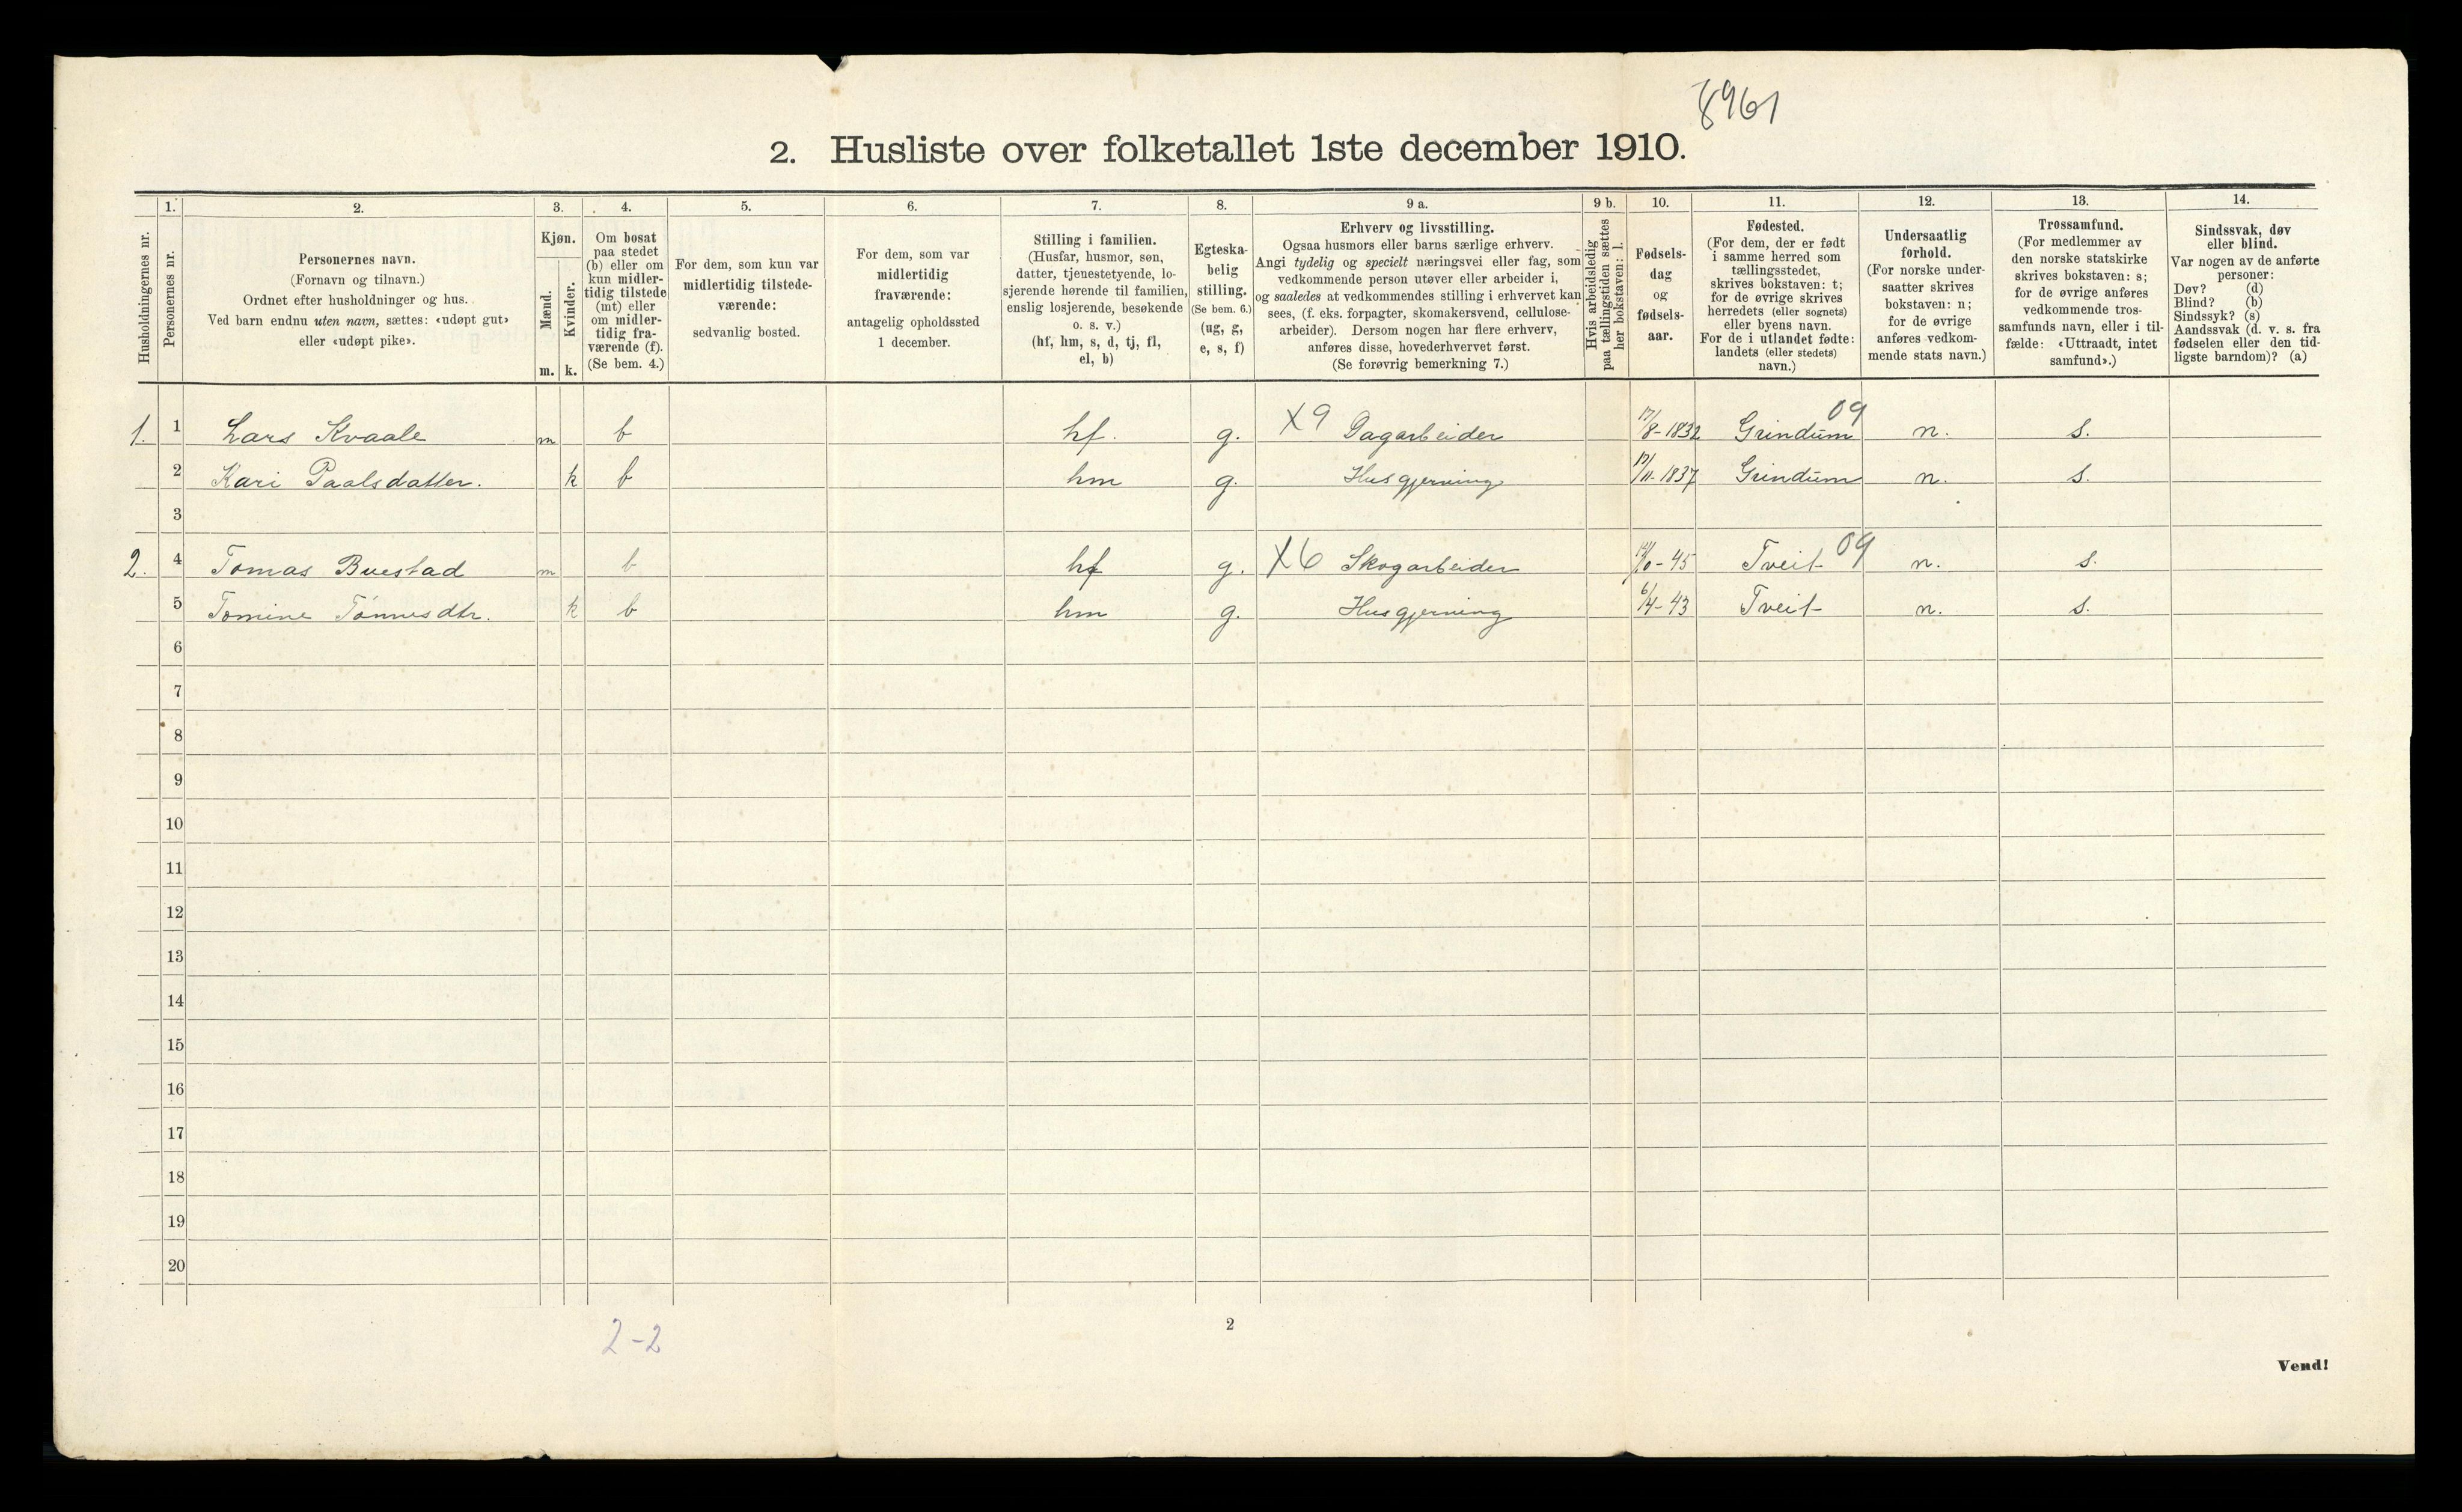 8961
2. Husliste over folketallet 1ste december 1910.
1. 2. 3. 4. 5. 6. 7. 8. 9 a. 9 b. 10. 11. 12. 13. 14.
Husholdningernes nr.
Personernes nr.
Personernes navn.
(Fornavn og tilnavn.)
Ordnet efter husholdninger og hus.
Ved barn endnu uten navn, sættes: «udøpt gut»
eller «udøpt pike».
Kjøn.
Mænd.
Kvinder.
m. k.
Om bosat
paa stedet
(b) eller om
kun midler-
tidig tilstede
(mt) eller
om midler-
tidig fra-
værende (f).
(Se bem. 4.)
For dem, som kun var
midlertidig tilstede-
værende:
sedvanlig bosted.
For dem, som var
midlertidig
fraværende:
antagelig opholdssted
1 december.
Stilling i familien.
(Husfar, husmor, søn,
datter, tjenestetyende, lo-
sjerende hørende til familien,
enslig losjerende, besøkende
o. s. v.)
(hf, hm, s, d, tj, fl,
el, b)
Egteska-
belig
stilling.
(Se bem. 6.)
(ug, g,
e, s, f)
Erhverv og livsstilling.
Ogsaa husmors eller barns særlige erhverv.
Angi tydelig og specielt næringsvei eller fag, som
vedkommende person utøver eller arbeider i,
og saaledes at vedkommendes stilling i erhvervet kan
sees, (f. eks. forpagter, skomakersvend, cellulose-
arbeider). Dersom nogen har flere erhverv,
anføres disse, hovederhvervet først.
(Se forøvrig bemerkning 7.)
Hvis arbeidsledig
paa tællingstiden sættes
her bokstaven: l.
Fødsels-
dag
og
fødsels-
aar.
Fødested.
(For dem, der er født
i samme herred som
tællingsstedet,
skrives bokstaven: t;
for de øvrige skrives
herredets (eller sognets)
eller byens navn.
For de i utlandet fødte:
landets (eller stedets)
navn.)
Undersaatlig
forhold.
(For norske under-
saatter skrives
bokstaven: n;
for de øvrige
anføres vedkom-
mende stats navn.)
Trossamfund.
(For medlemmer av
den norske statskirke
skrives bokstaven: s;
for de øvrige anføres
vedkommende tros-
samfunds navn, eller i til-
fælde: «Uttraadt, intet
samfund».)
Sindssvak, døv
eller blind.
Var nogen av de anførte
personer:
Døv? (d)
Blind? (b)
Sindssyk? (s)
Aandssvak (d. v. s. fra
fødselen eller den tid-
ligste barndom)? (a)
1. 1 Lars Kvaale m b hf. g. X9 Dagarbeider 17/8-1832 Grindum 09 n. s.
2 Kari Paalsdatter. k b hm g. Husgjerning 17/11-1837 Grindum n. s.
3
2. 4 Tomas Buestad m b hf g. X6 Skogarbeider -45 Tveit 09 n. s.
5 Tomine Tónnesdtr. k b hm g. Husgjerning 6/4-43 Tveit n. s.
6
7
8
9
10
11
12
13
14
15
16
17
18
19
20
2-2
2
Vend!